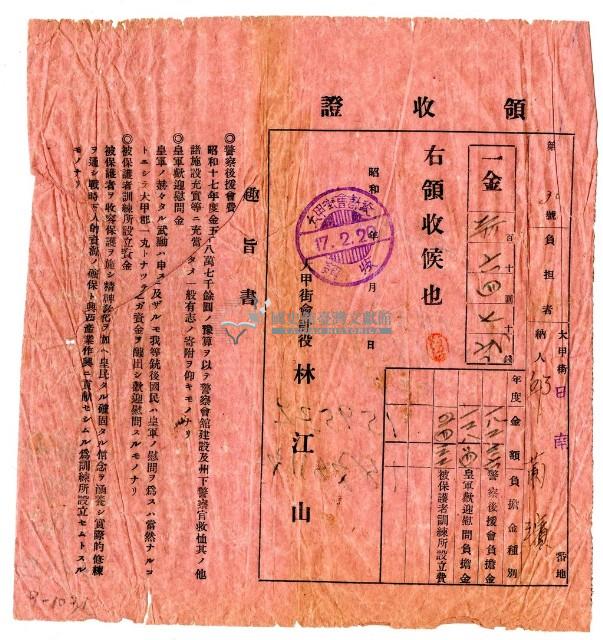 領收證
第 號
負擔者
大甲街 日南 番地
納人
一金 百十圓十錢
年度金額負擔金種別
警察後援會負擔金
皇軍歡迎慰問負擔金
被保護者訓練所設立費
右領收候也
昭和 年 月 日
17.2.2
大甲街會計役 林江山
趣旨書
◎警察後援會費
昭和十七年度金五十八萬七千餘圓ノ豫算ヲ以テ警察會館建設及州下警察官救恤其ノ他
諸施設充實等ニ充當ノタメ一般有志ノ寄附ヲ仰キモノナリ
◎皇軍歡迎慰問金
皇軍ノ赫々タル武勳ハ申スニ及ザルモ我等銃後國民ハ皇軍ノ慰問ヲ爲スハ當然ナルコ
トニシテ大甲郡一丸トナツテ之ガ資金ヲ醵出シ歡迎慰問スルモノナリ
◎被保護者訓練所設立資金
被保護者ヲ收容保護ヲ施シ精神敎化ヲ加ヘ皇民タル確固タル信念ヲ涵養シ實際的修練
ヲ通シ戰時下人的資源ノ確保ト興西産業作興ニ貢獻セシムル爲訓練所設立セムトスル
モノナリ
國史館臺灣文獻館
TAIWAN HISTORICA